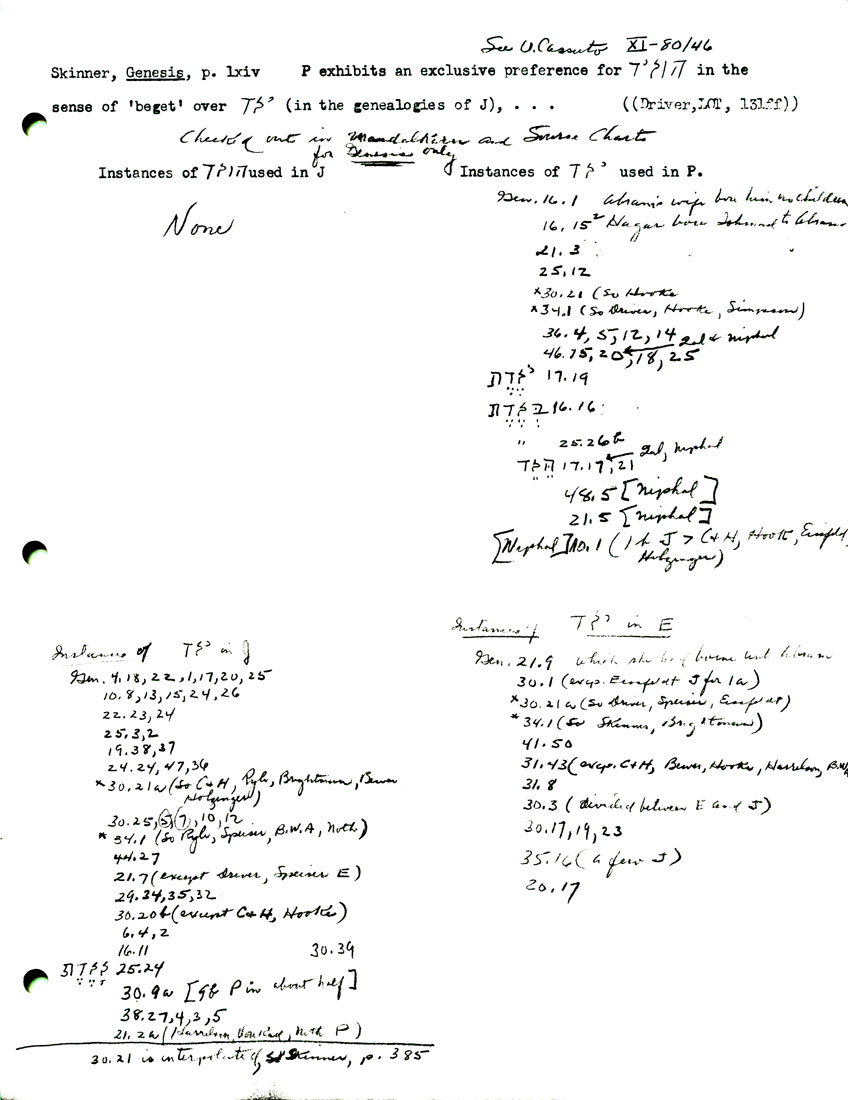 See U. Cassuto XI-80/46
Skinner, Genesis, p. lxiv P exhibits an exclusive preference for הוליד in the
sense of 'beget' over ילד (in the genealogies of J), . . . ((Driver, LOT, 131ff))
Check'd out in Mandalkern and Source Charts
for Genesis only
Instances of הוליד used in J
None
Instances of ילד used in P.
Gen. 16.1 Abram's wife bore him no children
16, 15² Hagar bore Ishmael to Abram
21.3
25,12
*30.21 (So Hooke
*34.1 (So Driver, Hooke, Simpson)
36.4, 5, 12, 14 Qal & Niphal
46.15, 20, 18, 25
17.19
בלדת 16.16
" 25.26b
17.17, 21 Qal, Niphal
48.5 [Niphal]
21.5 [Niphal]
[Niphal] 10.1 (1b J > C+H, Hooke, Eissfeldt,
Holzinger)
Instances of ילד in J
Gen. 4.18, 22, 1, 17, 20, 25
10.8, 13, 15, 24, 26
22.23, 24
25.3, 2
19.38, 37
24.24, 47, 36
*30.21a (So C+H, Ryle, Brightman, Bewer
Holzinger)
30.25, (5), (7), 10, 12
*34.1 (So Ryle, Speiser, B.W.A, Noth)
44.27
21.7 (except Driver, Speiser E)
29.34, 35, 32
30.20b (except C+H, Hooke)
6.4, 2
16.11 30.39
ללדת 25.24
30.9a [9b P in about half]
38.27, 4, 3, 5
21.2a (Harrelson, Noth P)
30.21 is interpolated, Skinner, p. 385
Instances of ילד in E
Gen. 21.9 which she had borne unto Abram
30.1 (exc. Eissfeldt J for 1a)
*30.21a (So Driver, Speiser, Eissfeldt)
*34.1 (So Skinner, Brightman)
41.50
31.43 (exc. C+H, Bewer, Hooke, Harrelson, B.W.A
31.8
30.3 (divided between E and J)
30.17, 19, 23
35.16 (a few J)
20.17